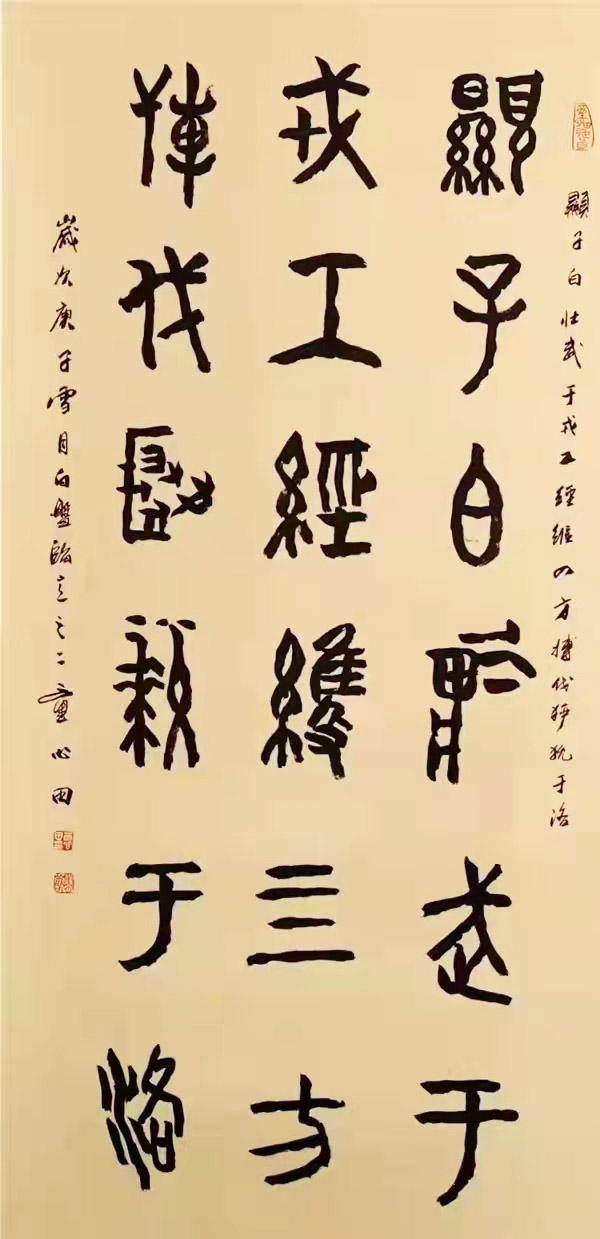 顯子白壯武于戎工經維四方搏伐玁狁于洛
顯子白壯武于
戎工經維四方
搏伐玁狁于洛
歲次庚子雪月白盤之二童心田